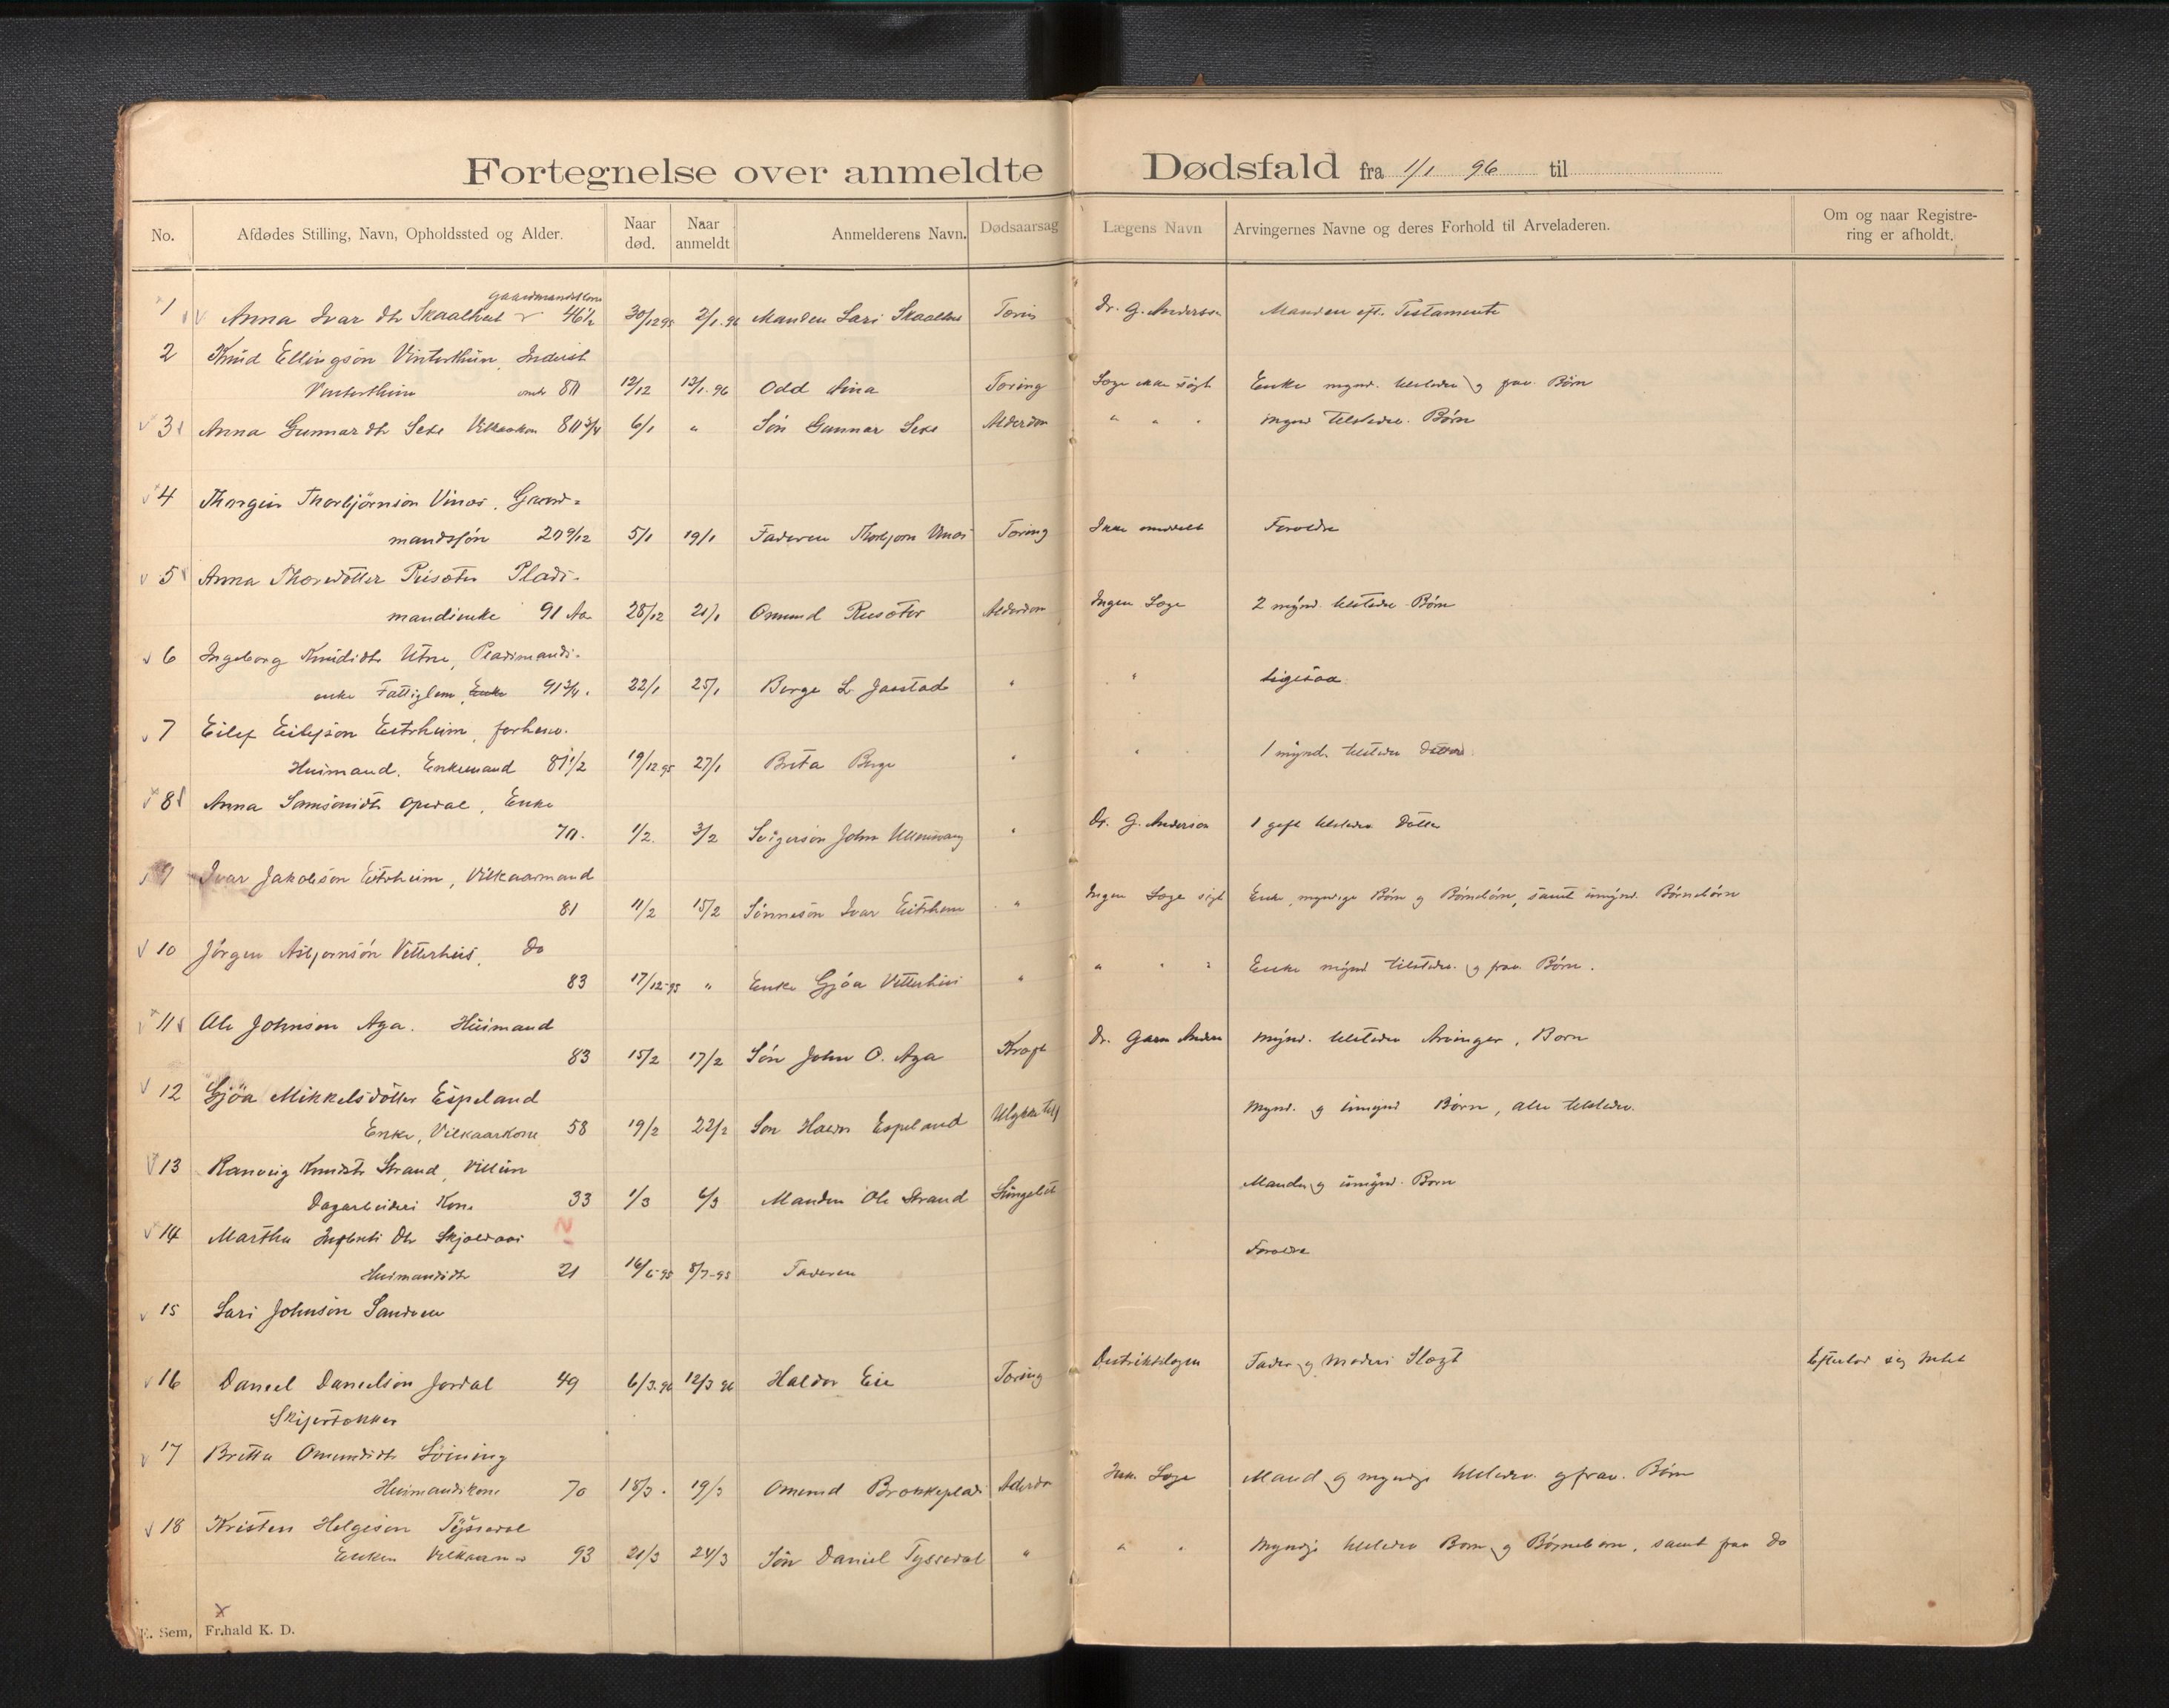 Fortegnelse over anmeldte Dødsfald fra 1/1 96 til
No. Afdødes Stilling, Navn, Opholdssted og Alder. Naar død. Naar anmeldt Anmelderens Navn. Dødsaarsag Lægens Navn Arvingernes Navne og deres Forhold til Arveladeren. Om og naar Registrering er afholdt.
gaardmandskone
1 Anna Ivar dtr 46½ 30/12 95 2/1. 96 Manden Lars Tæring Dr. G. Anderson Manden eft. Testamente
2 Knud Ellingsøn Vinterthun, Inderst
Vinterthun 80 12/12 13/1. 96 Odd Aina Tæring Læge ikke søgt Enke mynd. tilstedev. og frav. Børn
3 Anna Gunnardtr Sexe Vilkaarkone 80¾ 6/1 " Søn Gunnar Sexe Alderdom " " " mynd tilstedev. Børn
4 Thorgeir Thorbjørnsøn Vines. Gaard=
mandssøn 20 9/12 5/1 19/1 Faderen Thorbjørn Vines Tæring Ikke anmeldt Forældre
5 Anna Thoredotter Plads-
mandsenke 91 Aar 28/12 21/1 Omund Alderdom Ingen Læge 2 mynd. tilstedev. Børn
6 Ingeborg Knudsdtr Utne, Pladsmands-
enke Fattiglem, Enke 91¾. 22/1 25/1 Børge L. Jaastad " " Ligesaa
7 Eilef Eilefsøn Eitrheim, forhenv.
Husmand. Enkemand 81½ 19/12 95 27/1 Brita Berge " " 1 mynd. tilstedev Datter
8 Anna Samsonsdtr Opedal, Enke
70. 1/2. 3/2 Svigersøn John Ullensvang " Dr. G. Anderson 1 gift tilstedev. Datter
9 Ivar Jakobsøn Eitrheim, Vilkaarmand
81 11/2 15/2 Sønnesøn Ivar Eitrheim " Ingen Læge søgt Enke, myndige Børn og Børnebørn, samt umynd. Børnebørn
10 Jørgen Asbjørnsøn Vetterhus, Do
83 17/12-95 " Enke Gjøa Vetterhus " " " " Enke mynd tilstedev. og frav. Børn.
11 Ole Johnson Aga. Husmand
83 15/2 17/2 Søn John O. Aga Kræft Dr. Garm Anders mynd. tilstedev Arvinger, Børn
12 Gjøa Mikkelsdotter Espeland
Enke, Vilkaarkone 58 19/2 22/2 Søn Halvor Espeland Ulykkestilf Mynd. og umynd Børn, alle tilstedev.
13 Ranveig Knudsdtr Strand,
Dagarbeiders Kone 33 1/3 6/3 Manden Ole Strand Lungebet Manden og umynd. Børn
14 Martha dtr
Husmandsdtr 21 16/6-95 8/7-95 Faderen Forældre
15 Lars Johnsøn Sandven
16 Daniel Danielsøn Jordal 49 6/3. 96 12/3 96 Haldor Eie Tæring Distriktslægen Faders og Moders Slægt Efterlod sig Intet
17 Britta Omundsdtr
Husmandskone 70 18/3. 19/3 Omund Alderdom Ikke Læge Mand og myndige tilstedev. og frav. Børn
18 Kristen Helgeson Tyssedal
Enkem Vilkaarm 93 21/3 24/3 Søn Daniel Tyssedal " " " Myndige tilstedev Børn og Børnebørn, samt frav Do
E. Sem, Fr.hald K. D.